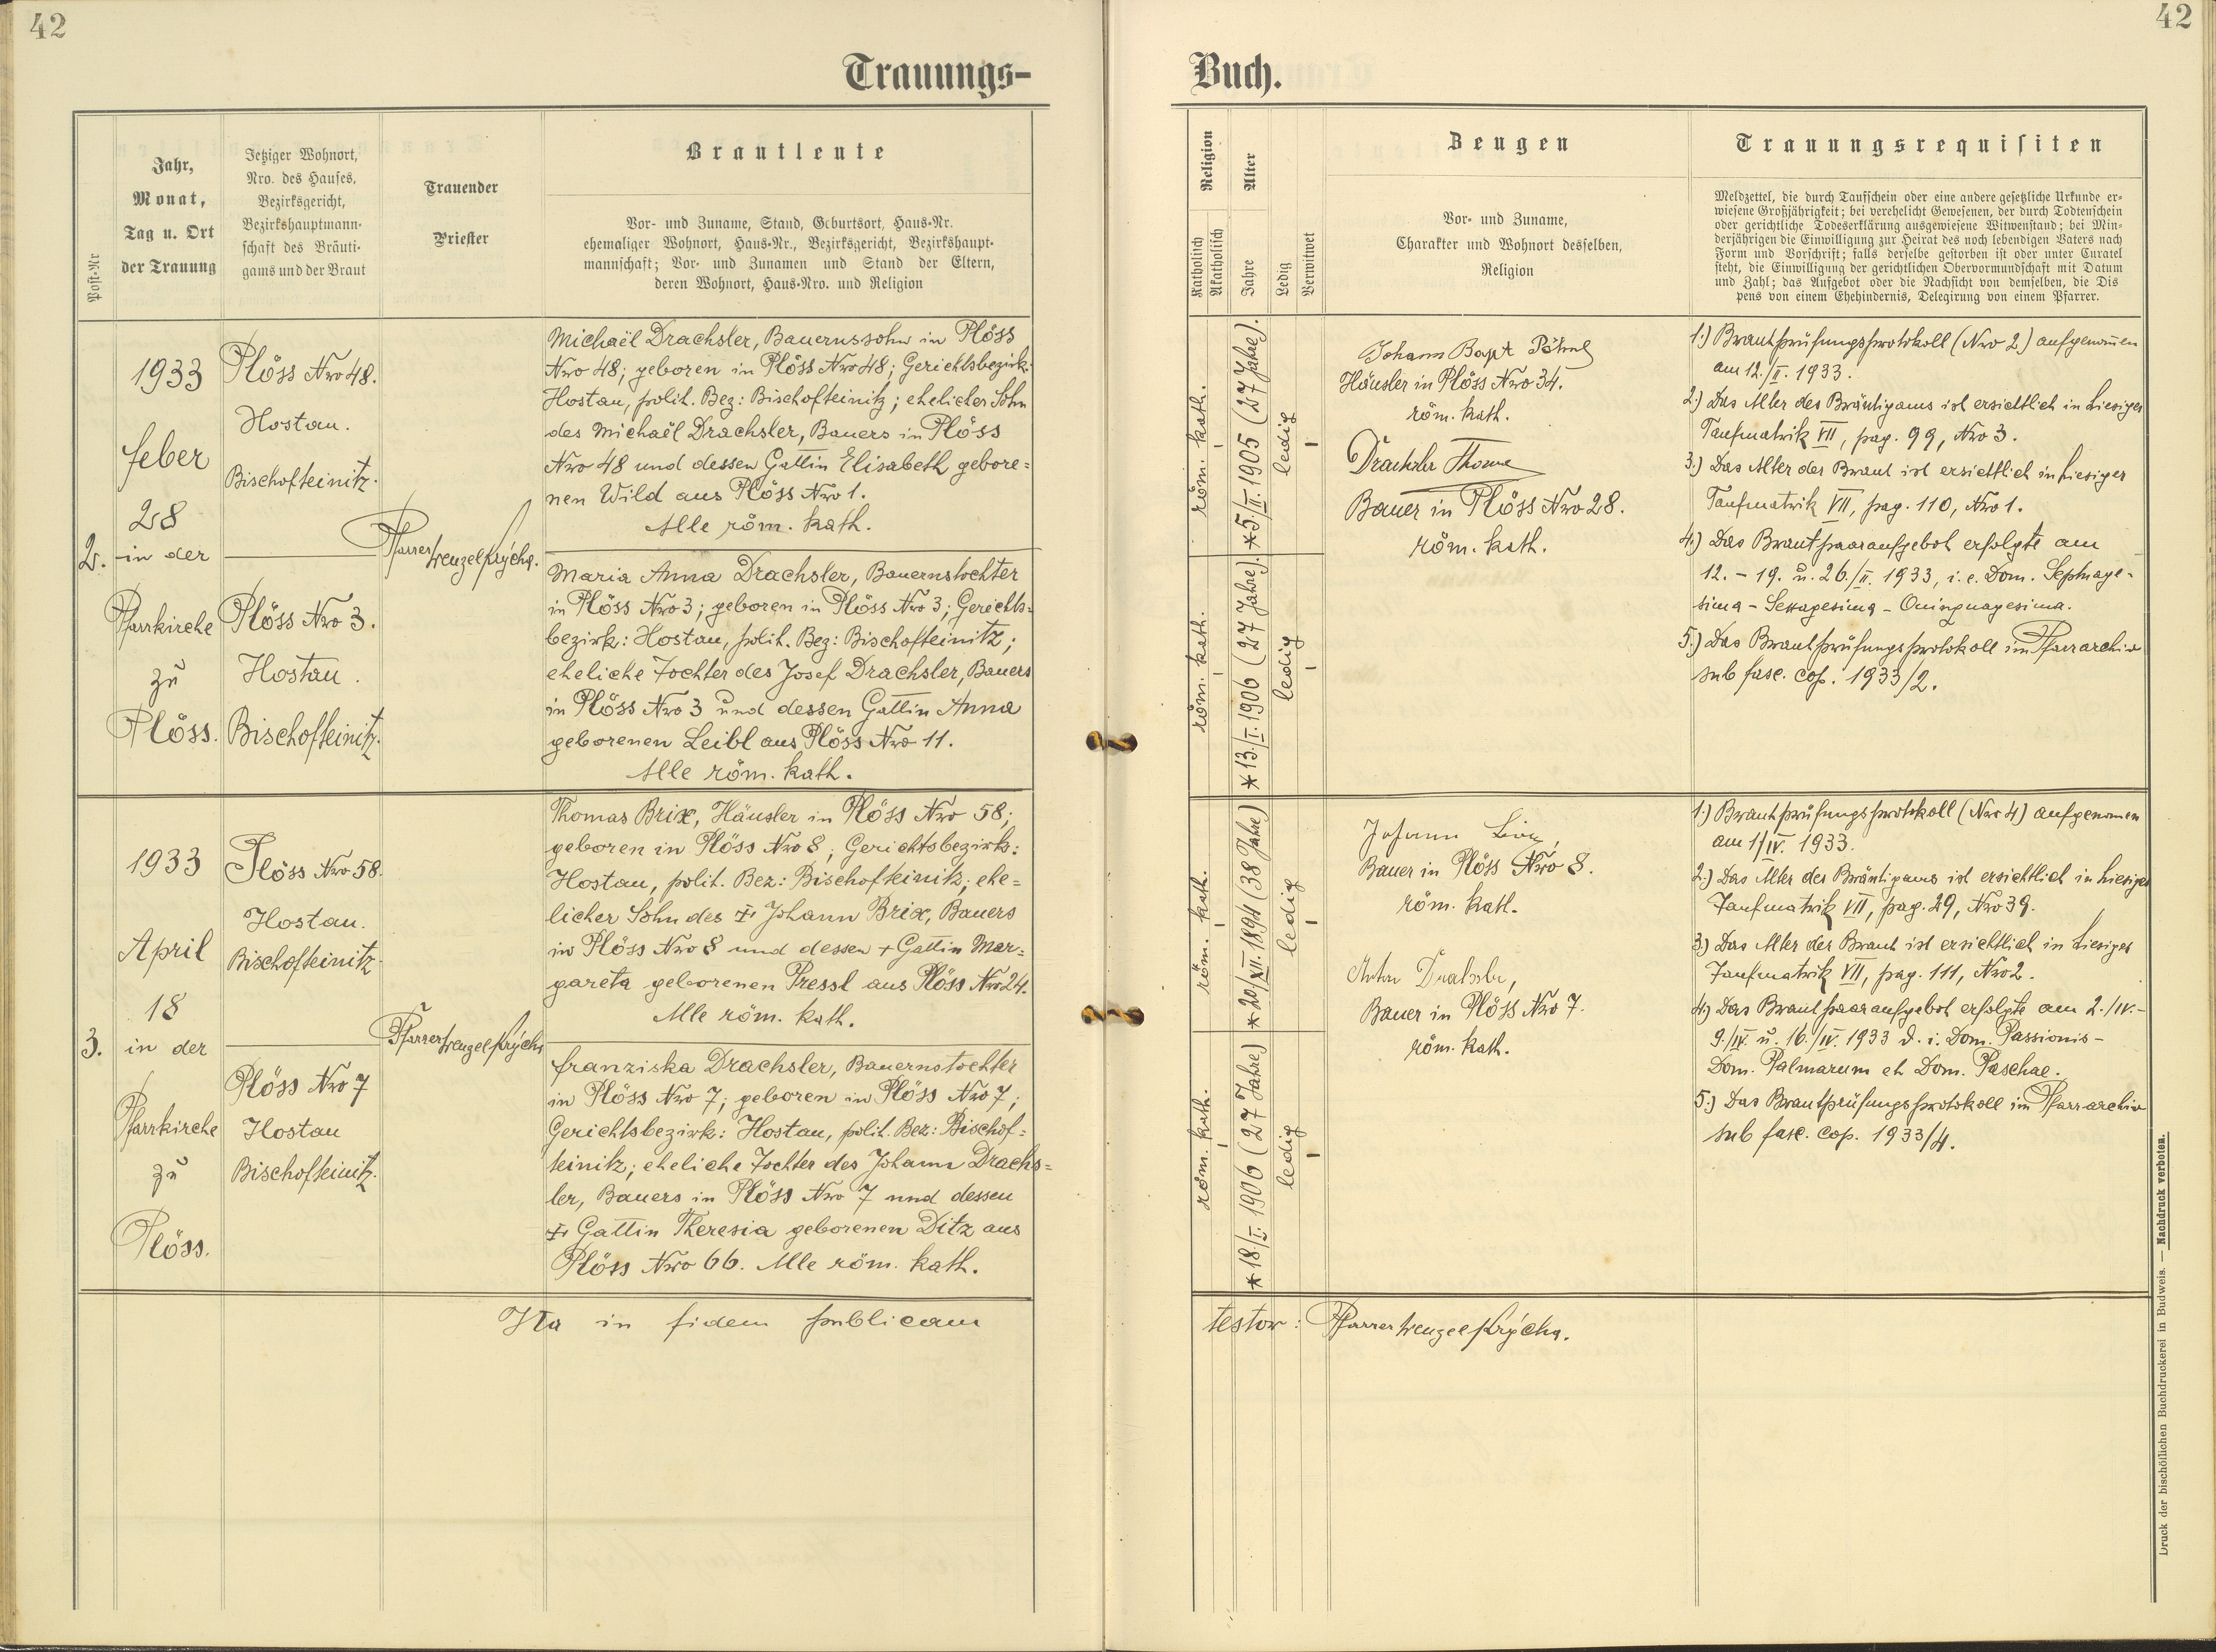 42
42
Trauungs-
Buch.
Post-Nr
Jahr,
Monat,
Tag u. Ort
der Trauung
Jetziger Wohnort,
Nro. des Hauses,
Bezirksgericht,
Bezirkshauptmann-
schaft des Bräuti-
gams und der Braut
Trauender
Priester
Brautleute
Vor- und Zuname, Stand, Geburtsort, Haus-Nr.
ehemaliger Wohnort, Haus-Nr., Bezirksgericht, Bezirkshaupt-
mannschaft; Vor- und Zunamen und Stand der Eltern,
deren Wohnort, Haus-Nro. und Religion
Religion
Katholisch
Akatholisch
Alter
Jahre
Ledig
Verwitwet
Zeugen
Vor- und Zuname,
Charakter und Wohnort desselben,
Religion
Trauungsrequisiten
Meldzettel, die durch Taufschein oder eine andere gesetzliche Urkunde er-
wiesene Großjährigkeit; bei verehelicht Gewesenen, der durch Todtenschein
oder gerichtliche Todeserklärung ausgewiesene Witwenstand; bei Min-
derjährigen die Einwilligung zur Heirat des noch lebendigen Vaters nach
Form und Vorschrift; falls derselbe gestorben ist oder unter Curatel
steht, die Einwilligung der gerichtlichen Obervormundschaft mit Datum
und Zahl; das Aufgebot oder die Nachsicht von demselben, die Dis
pens von einem Ehehindernis, Delegirung von einem Pfarrer.
2.
1933
feber
28
in der
Pfarrkirche
zu
Plöss.
Plöss Nro 48.
Hostau.
Bischofteinitz.
Plöss Nro 3.
Hostau.
Bischofteinitz.
Pfarrer Wenzel Krýcha.
Michaël Drachsler, Bauernssohn in Plöss
Nro 48; geboren in Plöss Nro 48; Gerichtsbezirk:
Hostau, polit. Bez: Bischofteinitz; ehelicher Sohn
des Michaël Drachsler, Bauers in Plöss
Nro 48 und dessen Gattin Elisabeth gebore=
nen Wild aus Plöss Nro 1.
Alle röm. kath.
Maria Anna Drachsler, Bauernstochter
in Plöss Nro 3; geboren in Plöss Nro 3; Gerichts=
bezirk: Hostau, polit. Bez: Bischofteinitz;
eheliche Tochter des Josef Drachsler, Bauers
in Plöss Nro 3 und dessen Gattin Anna
geborenen Leibl aus Plöss Nro 11.
Alle röm. kath.
röm. kath.
*5/II. 1905 (27 Jahre).
ledig
röm. kath.
*13./I. 1906 (27 Jahre).
ledig
Johann Bapt
Häusler in Plöss Nro 34.
röm. kath.
Drachsler Thomas
Bauer in Plöss Nro 28.
röm. kath.
1.) Brautprüfungsprotokoll (Nro 2) aufgenom̅en
am 12./II. 1933.
2.) Das Alter des Bräutigams ist ersichtlich in hiesiger
Taufmatrik VII, pag. 99, Nro 3.
3.) Das Alter der Braut ist ersichtlich in hiesiger
Taufmatrik VII, pag. 110, Nro 1.
4.) Das Brautpaaraufgebot erfolgte am
12. - 19. u. 26./II. 1933, i. e. Dom. Septuage-
sima - Sexagesima - Quinquagesima.
5.) Das Brautprüfungsprotokoll im Pfarrarchiv
sub fasc. cop. 1933/2.
3.
1933
April
18
in der
Pfarrkirche
zu
Plöss.
Plöss Nro 58.
Hostau.
Bischofteinitz.
Plöss Nro 7
Hostau
Bischofteinitz.
Pfarrer Wenzel Krýcha
Thomas Brix, Häusler in Plöss Nro 58;
geboren in Plöss Nro 8; Gerichtsbezirk:
Hostau, polit. Bez: Bischofteinitz; ehe=
licher Sohn des † Johann Brix, Bauers
in Plöss Nro 8 und dessen + Gattin Mar=
gareta geborenen Pressl aus Plöss Nro 24.
Alle röm. kath.
franziska Drachsler, Bauernstochter
in Plöss Nro 7; geboren in Plöss Nro 7;
Gerichtsbezirk: Hostau, polit. Bez: Bischof=
teinitz; eheliche Tochter des Johann Drachs=
ler, Bauers in Plöss Nro 7 und dessen
† Gattin Theresia geborenen Ditz aus
Plöss Nro 66. Alle röm. kath.
röm. kath.
*20/XII. 1894 (38 Jahre)
ledig
röm. kath.
*18/I. 1906 (27 Jahre)
ledig
Johann
Bauer in Plöss Nro 8.
röm. kath.
Anton Drachsler,
Bauer in Plöss Nro 7.
röm. kath.
1.) Brautprüfungsprotokoll (Nro 4) aufgenomen
am 1/IV. 1933.
2.) Das Alter des Bräutigams ist ersichtlich in hiesiger
Taufmatrik VII, pag. 29, Nro 39.
3.) Das Alter der Braut ist ersichtlich in hiesiger
Taufmatrik VII, pag. 111, Nro 2.
4.) Das Brautpaaraufgebot erfolgte am 2./IV.-
9./IV. u. 16./IV. 1933 d. i. Dom. Passionis-
Dom. Palmarum et Dom. Paschae.
5.) Das Brautprüfungsprotokoll im Pfarrarchiv
sub fasc. cop. 1933/4.
Ita in fidem publicam
testor: Pfarrer Wenzel Krýcha.
Druck der bischöflichen Buchdruckerei in Budweis. — Nachdruck verboten.